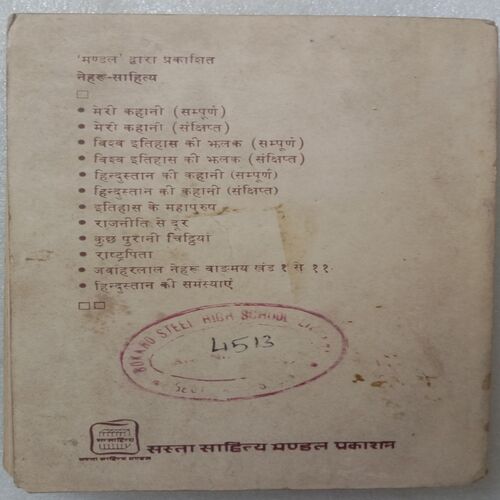 'मण्डल' द्वारा प्रकाशित
नेहरू-साहित्य
मेरी कहानी (सम्पूर्ण)
मेरी कहानी (संक्षिप्त)
विश्व इतिहास की झलक (सम्पूर्ण)
विश्व इतिहास की झलक (संक्षिप्त)
हिन्दुस्तान की कहानी (सम्पूर्ण)
हिन्दुस्तान की कहानी (संक्षिप्त)
इतिहास के महापुरुष
राजनीति से दूर
कुछ पुरानी चिट्ठियां
राष्ट्रपिता
जवाहरलाल नेहरू वाङमय खंड १ से ११
हिन्दुस्तान की समस्याएं
BOKARO STEEL HIGH SCHOOL
4513
सस्ता साहित्य मण्डल प्रकाशन
सस्ता साहित्य मण्डल